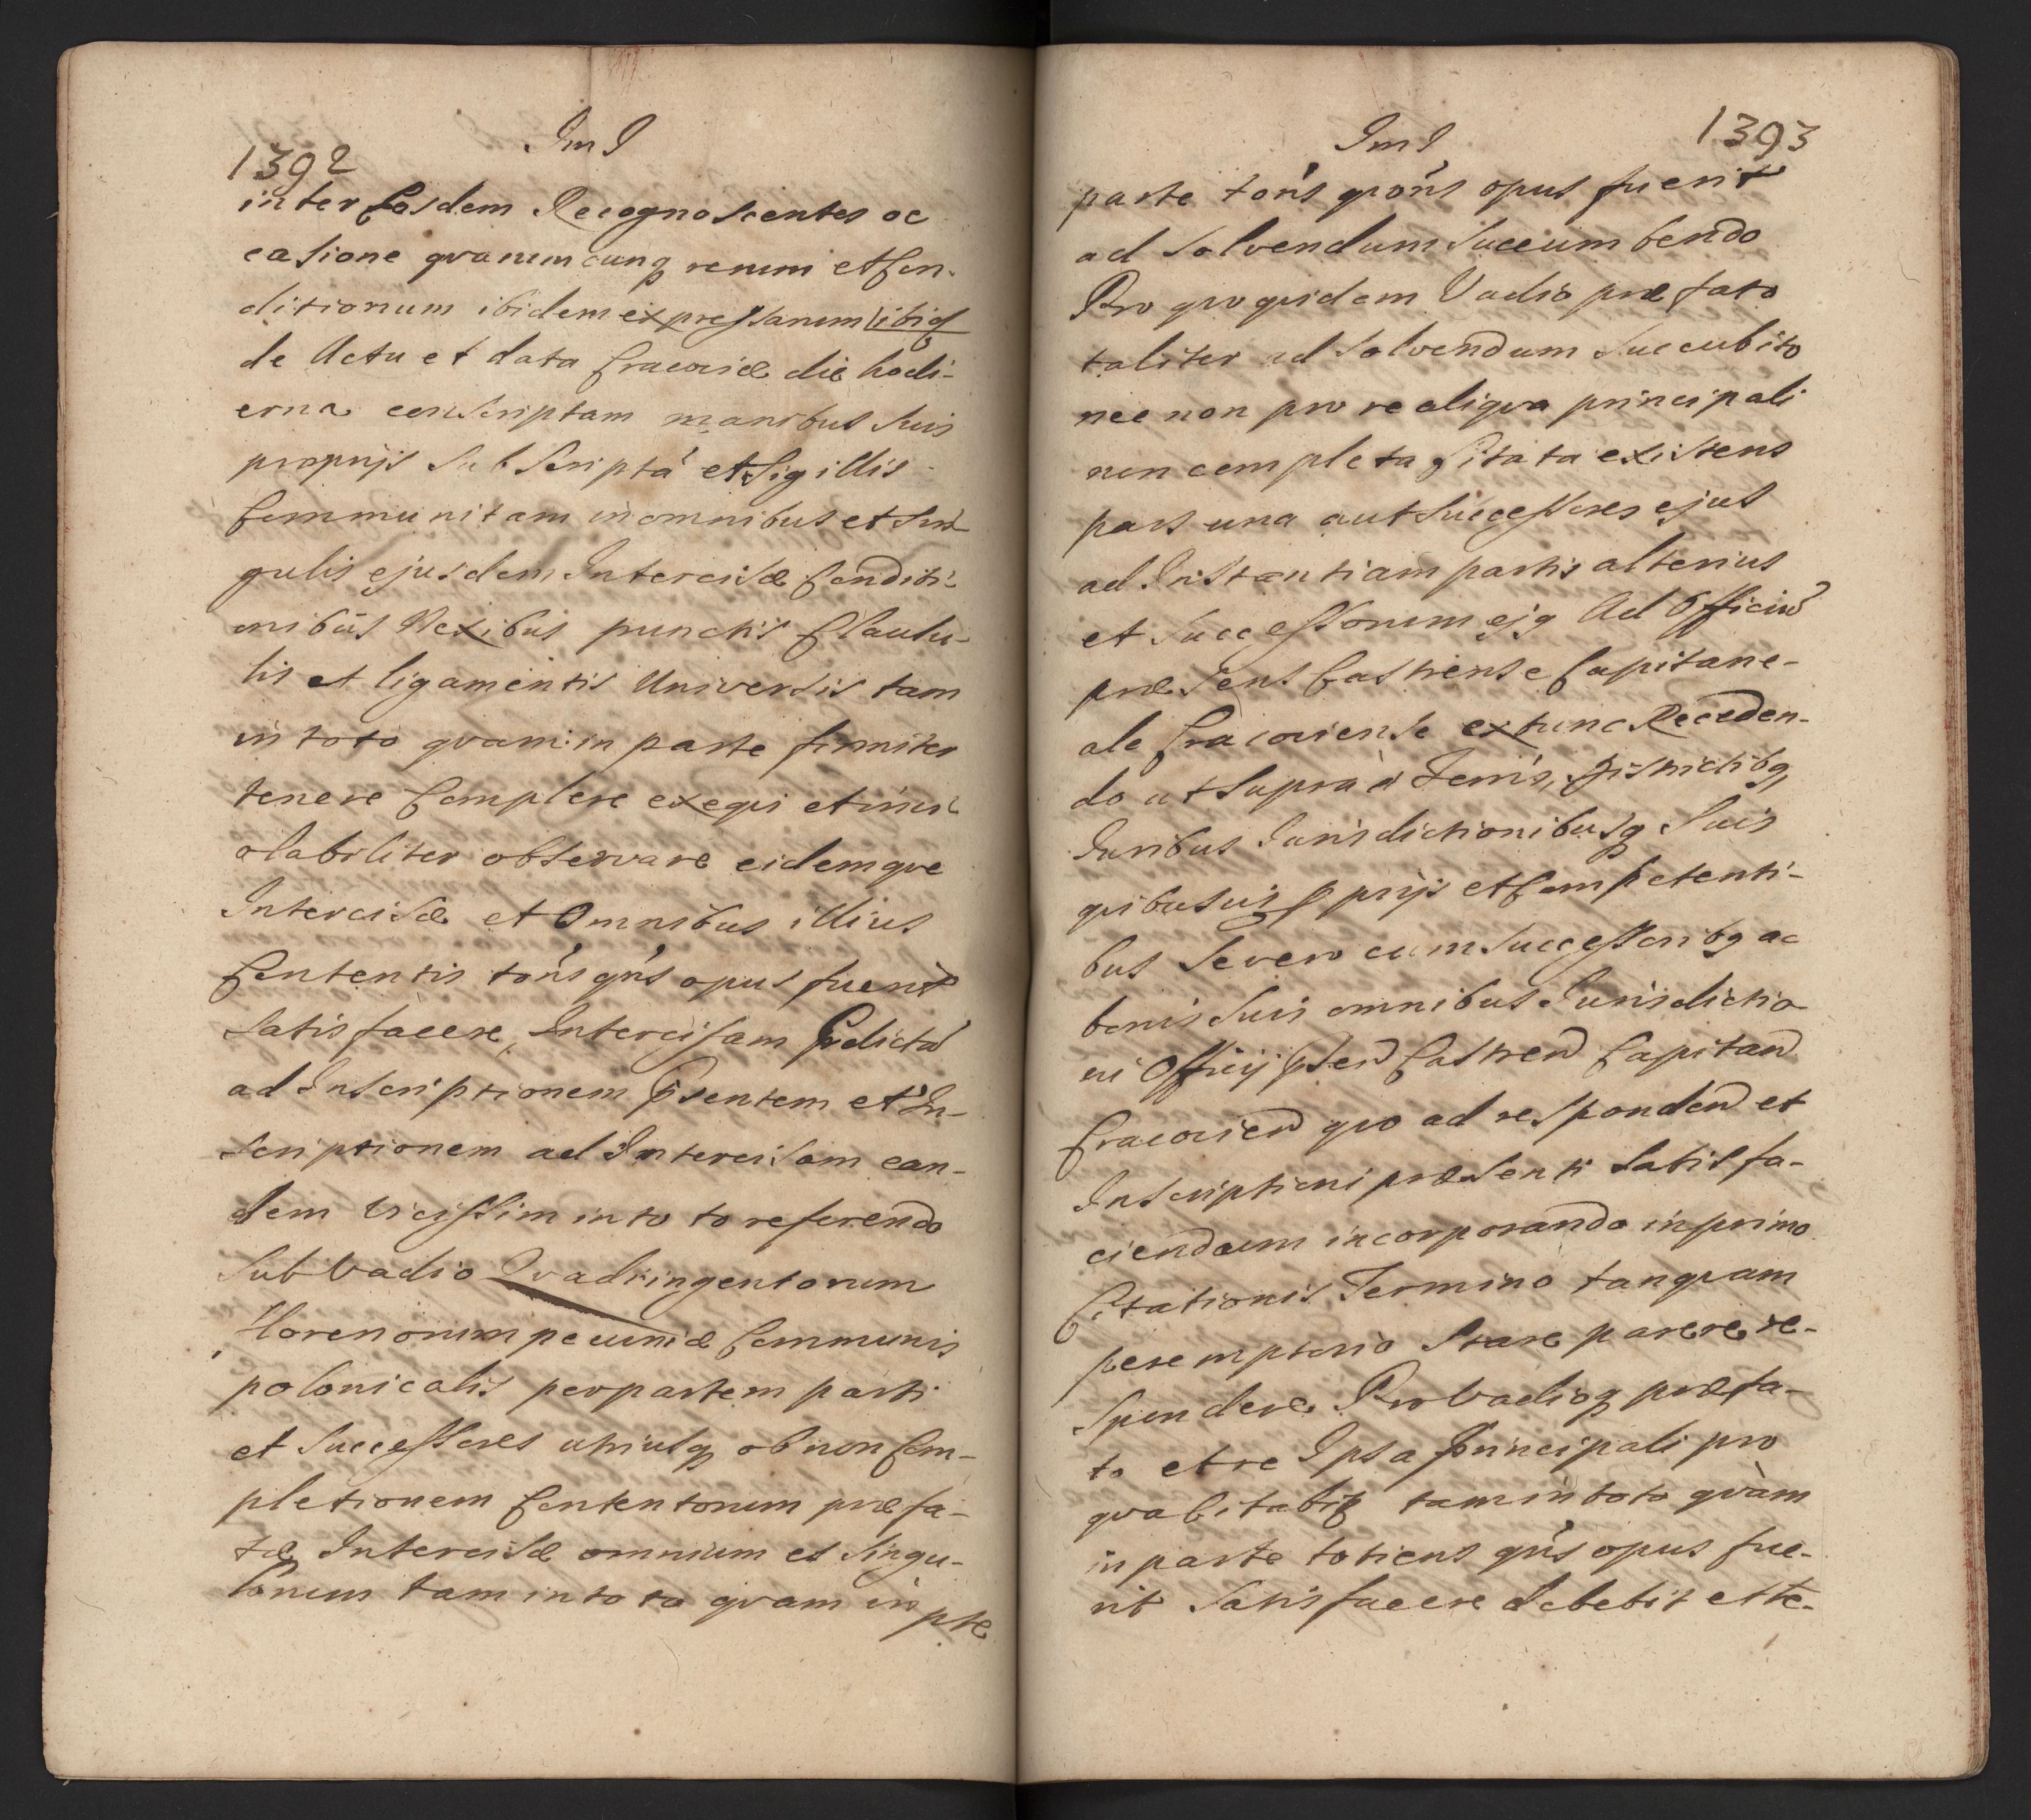 1392
Im I
inter Eosdem Recognoscentes oc
casione qvarumcunq rerum et Con-
ditionum ibidem expressarum ibiq
de Actu et data Cracoviæ die hodi-
erna conscriptam manibus suis
proprijs subscriptá et Sigillis
Communitam in omnibus et sin
gulis ejusdem Intercisæ Conditi-
onibus Nexibus punctis Clausu-
lis et ligamentis Universis tam
in toto qvam in parte firmiter
tenere Complere exeqvi et invi
olabiliter observare eidemqve
Intercisæ et Omnibus illius
Contentis tońs qńs opus fuerit
satisfacere, Intercisam pdictã
ad Inscriptionem psentem et In-
scriptionem ad Intercisam ean-
dem vicissim in toto referendo
sub Vadio Qvadringentorum
Florenorum pecuniæ Communis
polonicalis per partem parti
et successores utriusq ob non Com-
pletionem Contentorum præfa-
tæ Intercisæ omnium et singu-
lorum tam in toto qvam in pte
1393
Im I
parte tońs qvońs opus fuerit
ad solvendum succumbendo
Pro qvo qvidem Vadio præfato
taliter ad solvendum succubito
nec non pro re aliqva principali
non completa Citata existens
pars una aut Successores ejus
ad Instantiam partis alterius
et Successorum ejq Ad Officiũ
præsens Castrense Capitane-
ale Cracoviense extunc Receden-
do ut supra à Terris, Districtibq,
Juribus Jurisdictionibusq Suis
qvibusvis pprijs et Competenti-
bus se vero cum Successoribq ac
bonis suis omnibus Jurisdictio
ni Officij psen Castren Capitan
Cracovien qvo ad responden et
Inscriptioni præsenti satisfa-
ciendum incorporando in primo
Citationis Termino tanqvam
peremptorio Stare parere re-
spondere Pro Vadioq præfa-
to et re Ipsa Principali pro
qva Citabit tam in toto qvàm
in parte totiens qńs opus fue-
rit Satisfacere debebit et te-